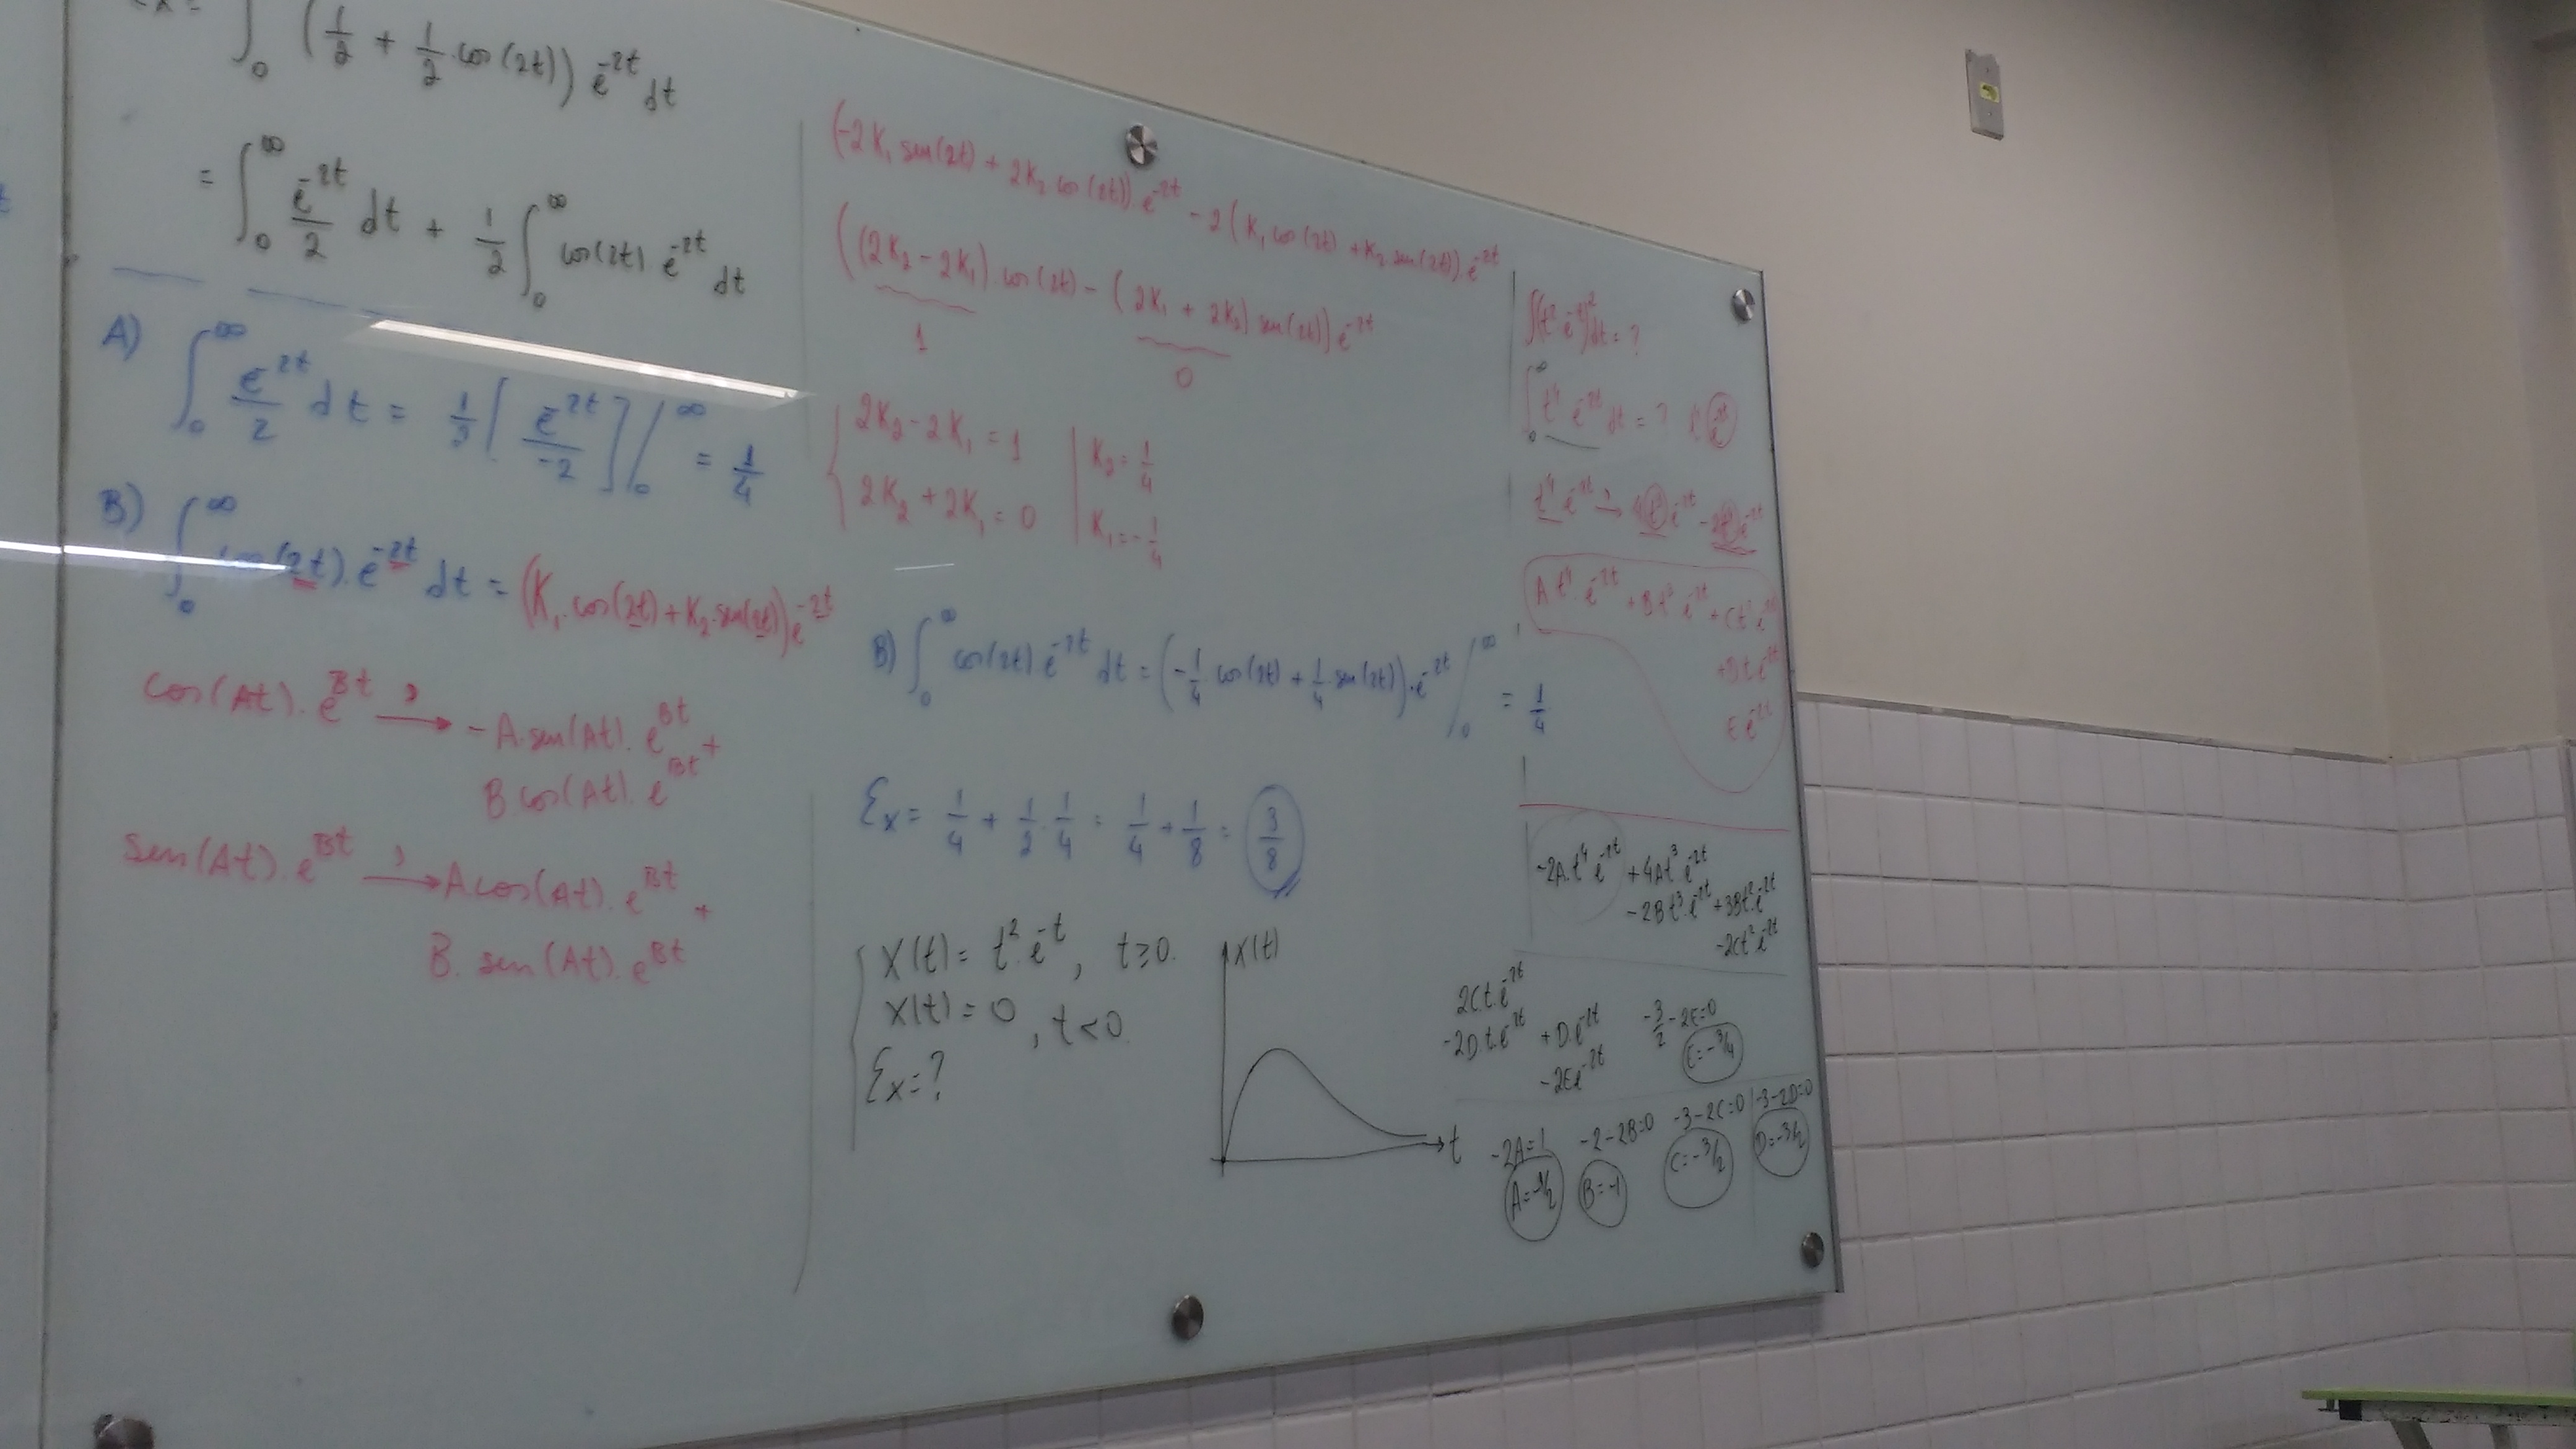 ∫₀ (1/2 + 1/2 · cos(2t)) e^-2t dt
= ∫₀^∞ e^-2t/2 dt + 1/2 ∫₀^∞ cos(2t) · e^-2t dt
A) ∫₀^∞ e^-2t/2 dt = 1/2 [e^-2t/-2] |₀^∞ = 1/4
B) ∫₀^∞ cos(2t) · e^-2t dt = (K₁ · cos(2t) + K₂ · sen(2t)) e^-2t
cos(At) · e^Bt → -A · sen(At) · e^Bt +
B cos(At) · e^Bt
sen(At) · e^Bt → A cos(At) · e^Bt +
B · sen(At) · e^Bt
(-2K₁ sen(2t) + 2K₂ cos(2t)) · e^-2t - 2(K₁ cos(2t) + K₂ sen(2t)) · e^-2t
((2K₂ - 2K₁) · cos(2t) - (2K₁ + 2K₂) sen(2t)) e^-2t
1 0
2K₂ - 2K₁ = 1 | K₂ = 1/4
2K₂ + 2K₁ = 0 | K₁ = -1/4
B) ∫₀^∞ cos(2t) e^-2t dt = (-1/4 cos(2t) + 1/4 sen(2t)) · e^-2t |₀^∞ = 1/4
Ex = 1/4 + 1/2 · 1/4 = 1/4 + 1/8 = 3/8
x(t) = t² · e^-t, t≥0
x(t) = 0, t<0
Ex = ?
x(t)
t
∫(t² e^-t)² dt = ?
∫₀^∞ t⁴ e^-2t dt = ?
t⁴ e^-2t → 4t³ e^-2t - 2t⁴ e^-2t
A t⁴ · e^-2t + B t³ e^-2t + C t² e^-2t
+ D t e^-2t
E e^-2t
-2A t⁴ e^-2t + 4A t³ e^-2t
-2B t³ · e^-2t + 3B t² · e^-2t
-2C t² e^-2t
2C t · e^-2t
-2D t · e^-2t + D · e^-2t
-2E e^-2t
-3/2 - 2E = 0
E = -3/4
-2A = 1 -2-2B=0 -3-2C=0 -3-2D=0
A = -1/2 B = -1 C = -3/2 D = -3/2